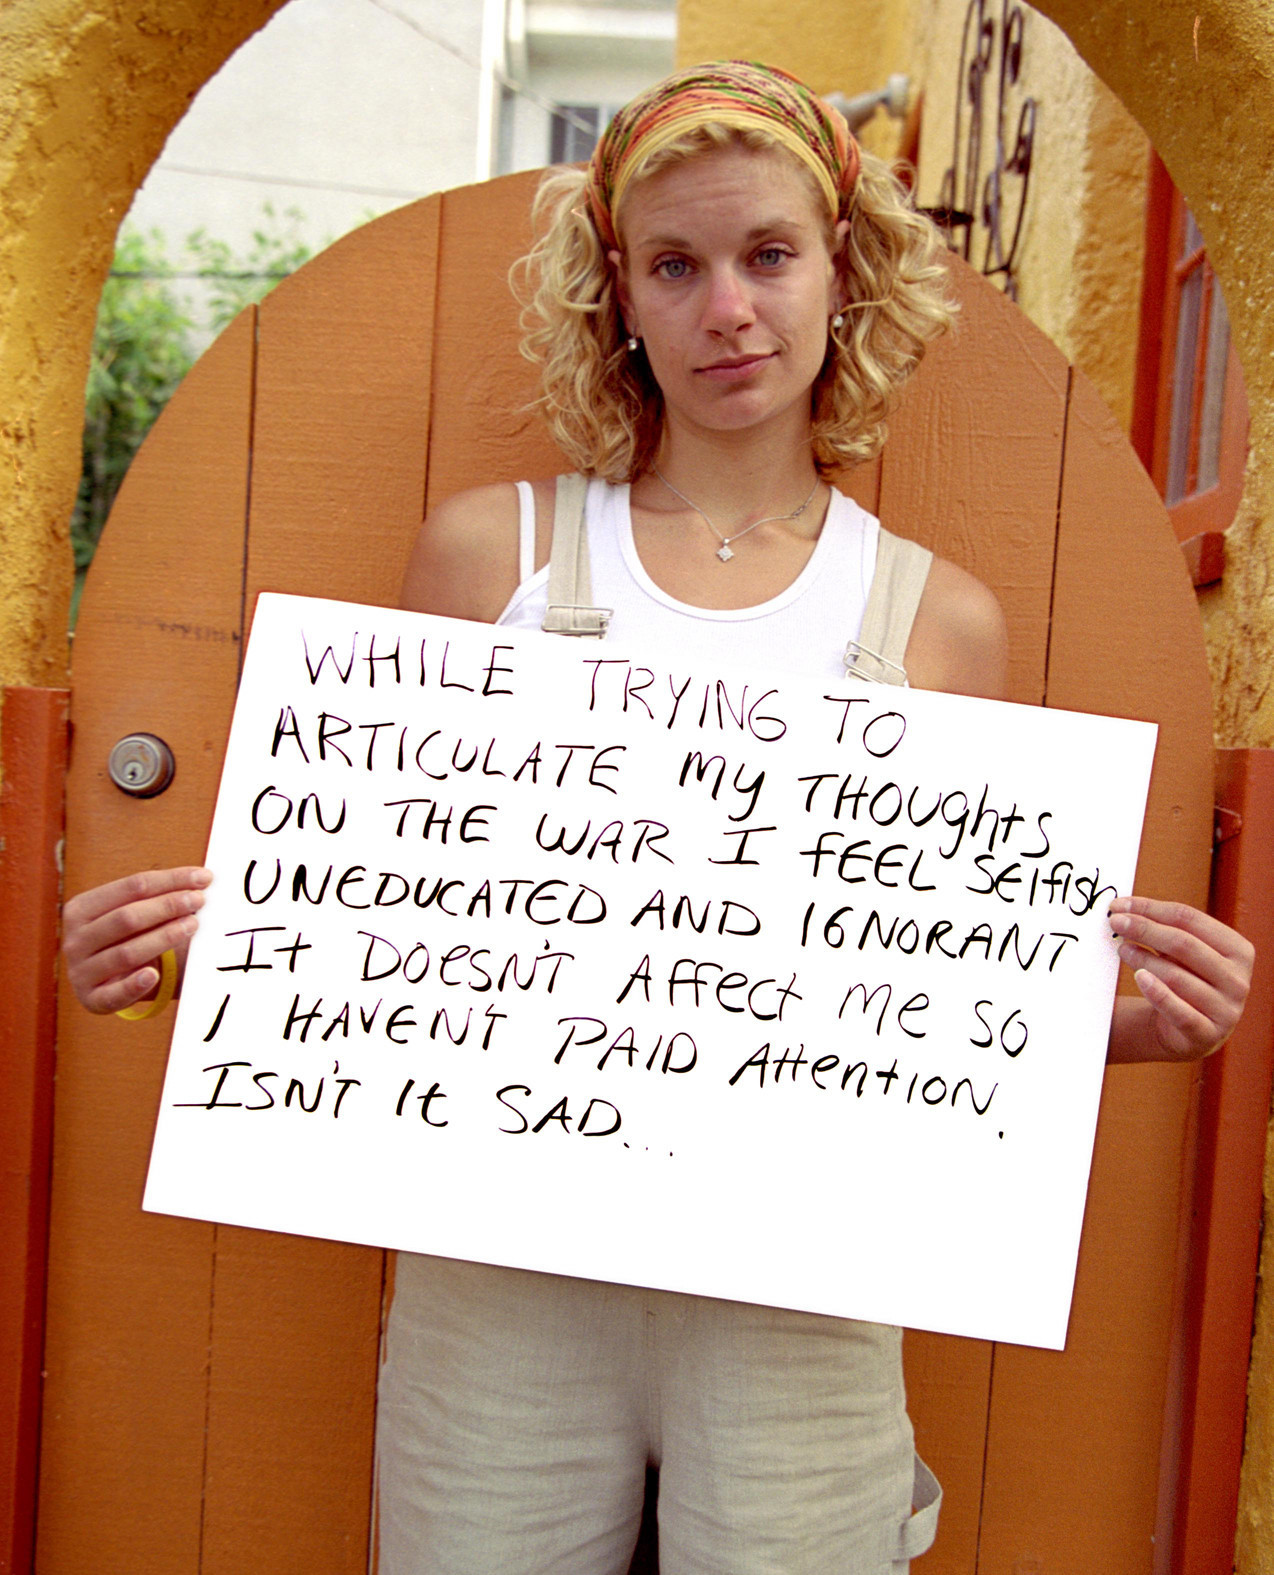 WHILE TRYING TO
ARTICULATE MY THOUghtS
ON THE WAR I fEEL SElfish,
UNEDUCATED AND IGNORANT
It DOesN'T AFFect Me SO
I HAVEN'T PAID AttentION.
ISN'T It SAD...